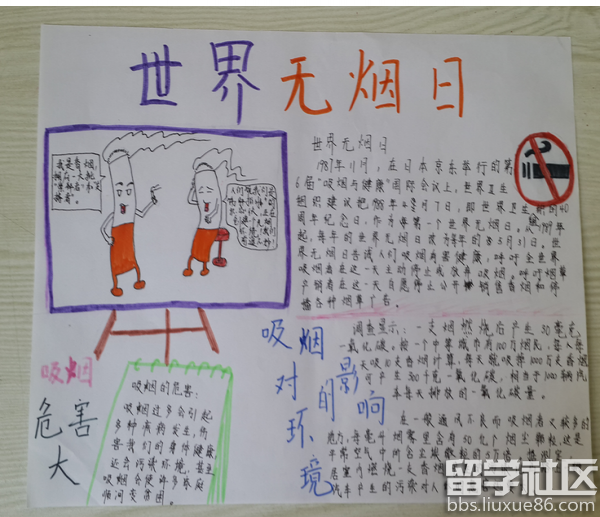 世界无烟日
我是香烟,
世界无烟日
1987年11月,在日本东京举行的第
6届"吸烟与健康"国际会议上,世界卫生
组织建议把1988年4月7日,即世界卫生
周年纪念日,作为第一个世界无烟日,
起,每年的世界无烟日改为每年的5月31日,世
界无烟日告诫人们吸烟有害健康,呼吁全世界
吸烟者在这一天主动停止或放弃吸烟,呼吁烟草
产销者在这一天自愿停止公开销售香烟和
各种烟草广告。
吸烟
危害
大
吸烟的危害:
吸烟过多会引起
多种疾病发生,伤
害我们的身体健康,
还会污染环境,甚至
吸烟会使许多家庭
吸烟
对环境
的影响
调查显示:一支烟燃烧后产生50毫克
一氧化碳,按一个中等城市有100万烟民,每人每
天吸10支香烟计算,每天就吸掉1000万支香烟
可产生500千克一氧化碳,相当于1000辆汽
车每天排放的一氧化碳量。
在一般通风不良而吸烟者又较多的
地方,每毫升烟雾里含有50亿个烟尘颗粒,这是
平常空气中所含尘埃
居室内燃烧一支香烟
汽车产生的污染对人
留学社区
bbs.liuxue86.com